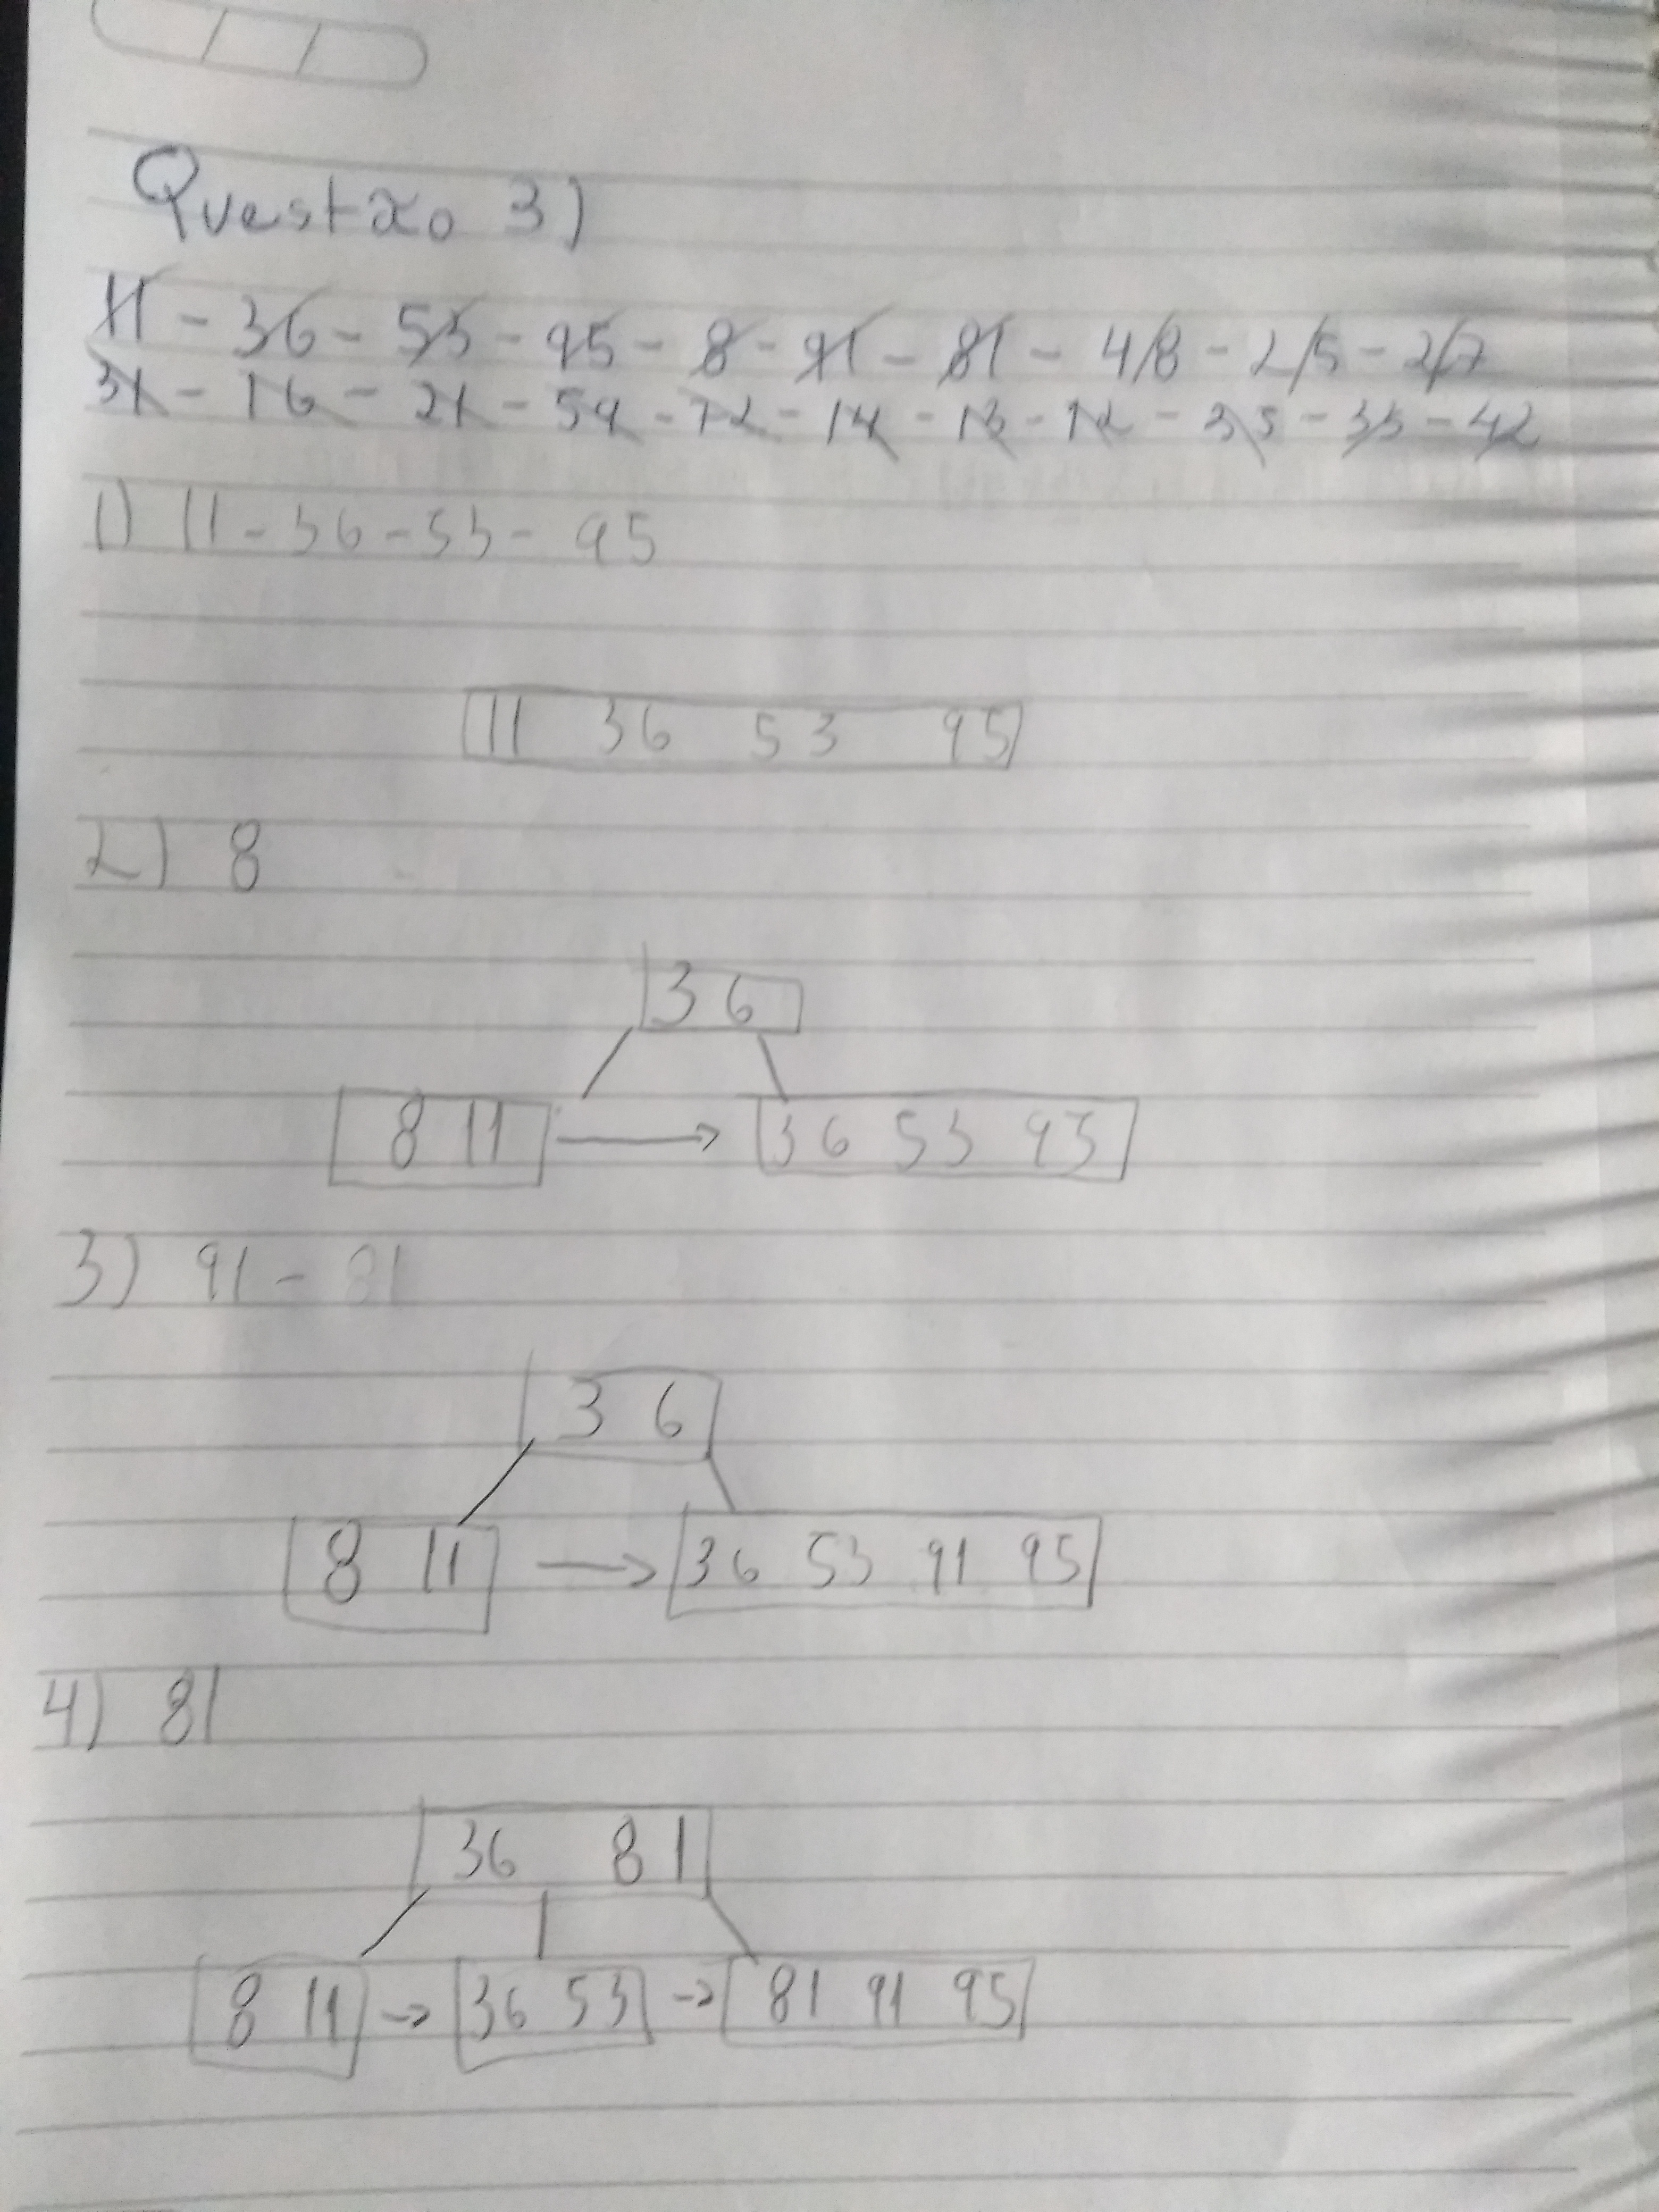 Questão 3)
11 - 36 - 53 - 95 - 8 - 91 - 81 - 48 - 25 - 27
31 - 16 - 21 - 54 - 72 - 14 - 13 - 12 - 35 - 42
1) 11 - 36 - 53 - 95
11 36 53 95
2) 8
36
8 11 → 36 53 95
3) 91 - 81
36
8 11 → 36 53 91 95
4) 81
36 81
8 11 → 36 53 → 81 91 95